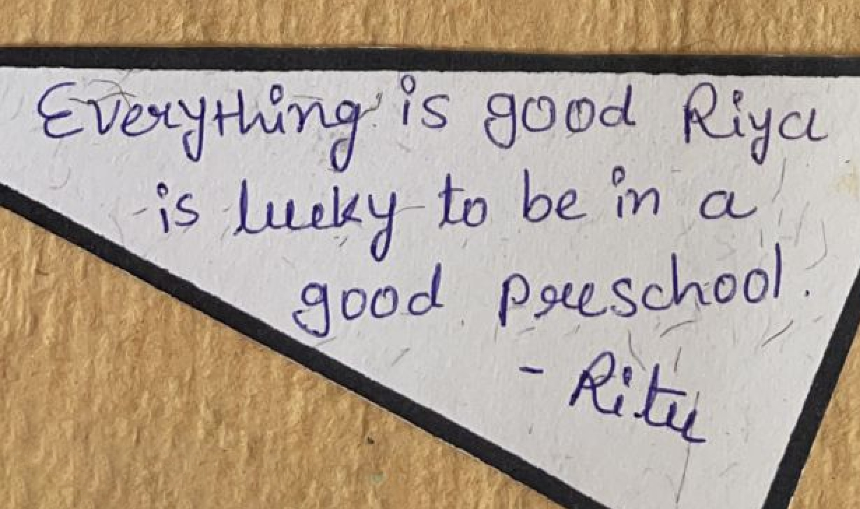 Everything is good Riya
is lucky to be in a
good preschool.
- Ritu